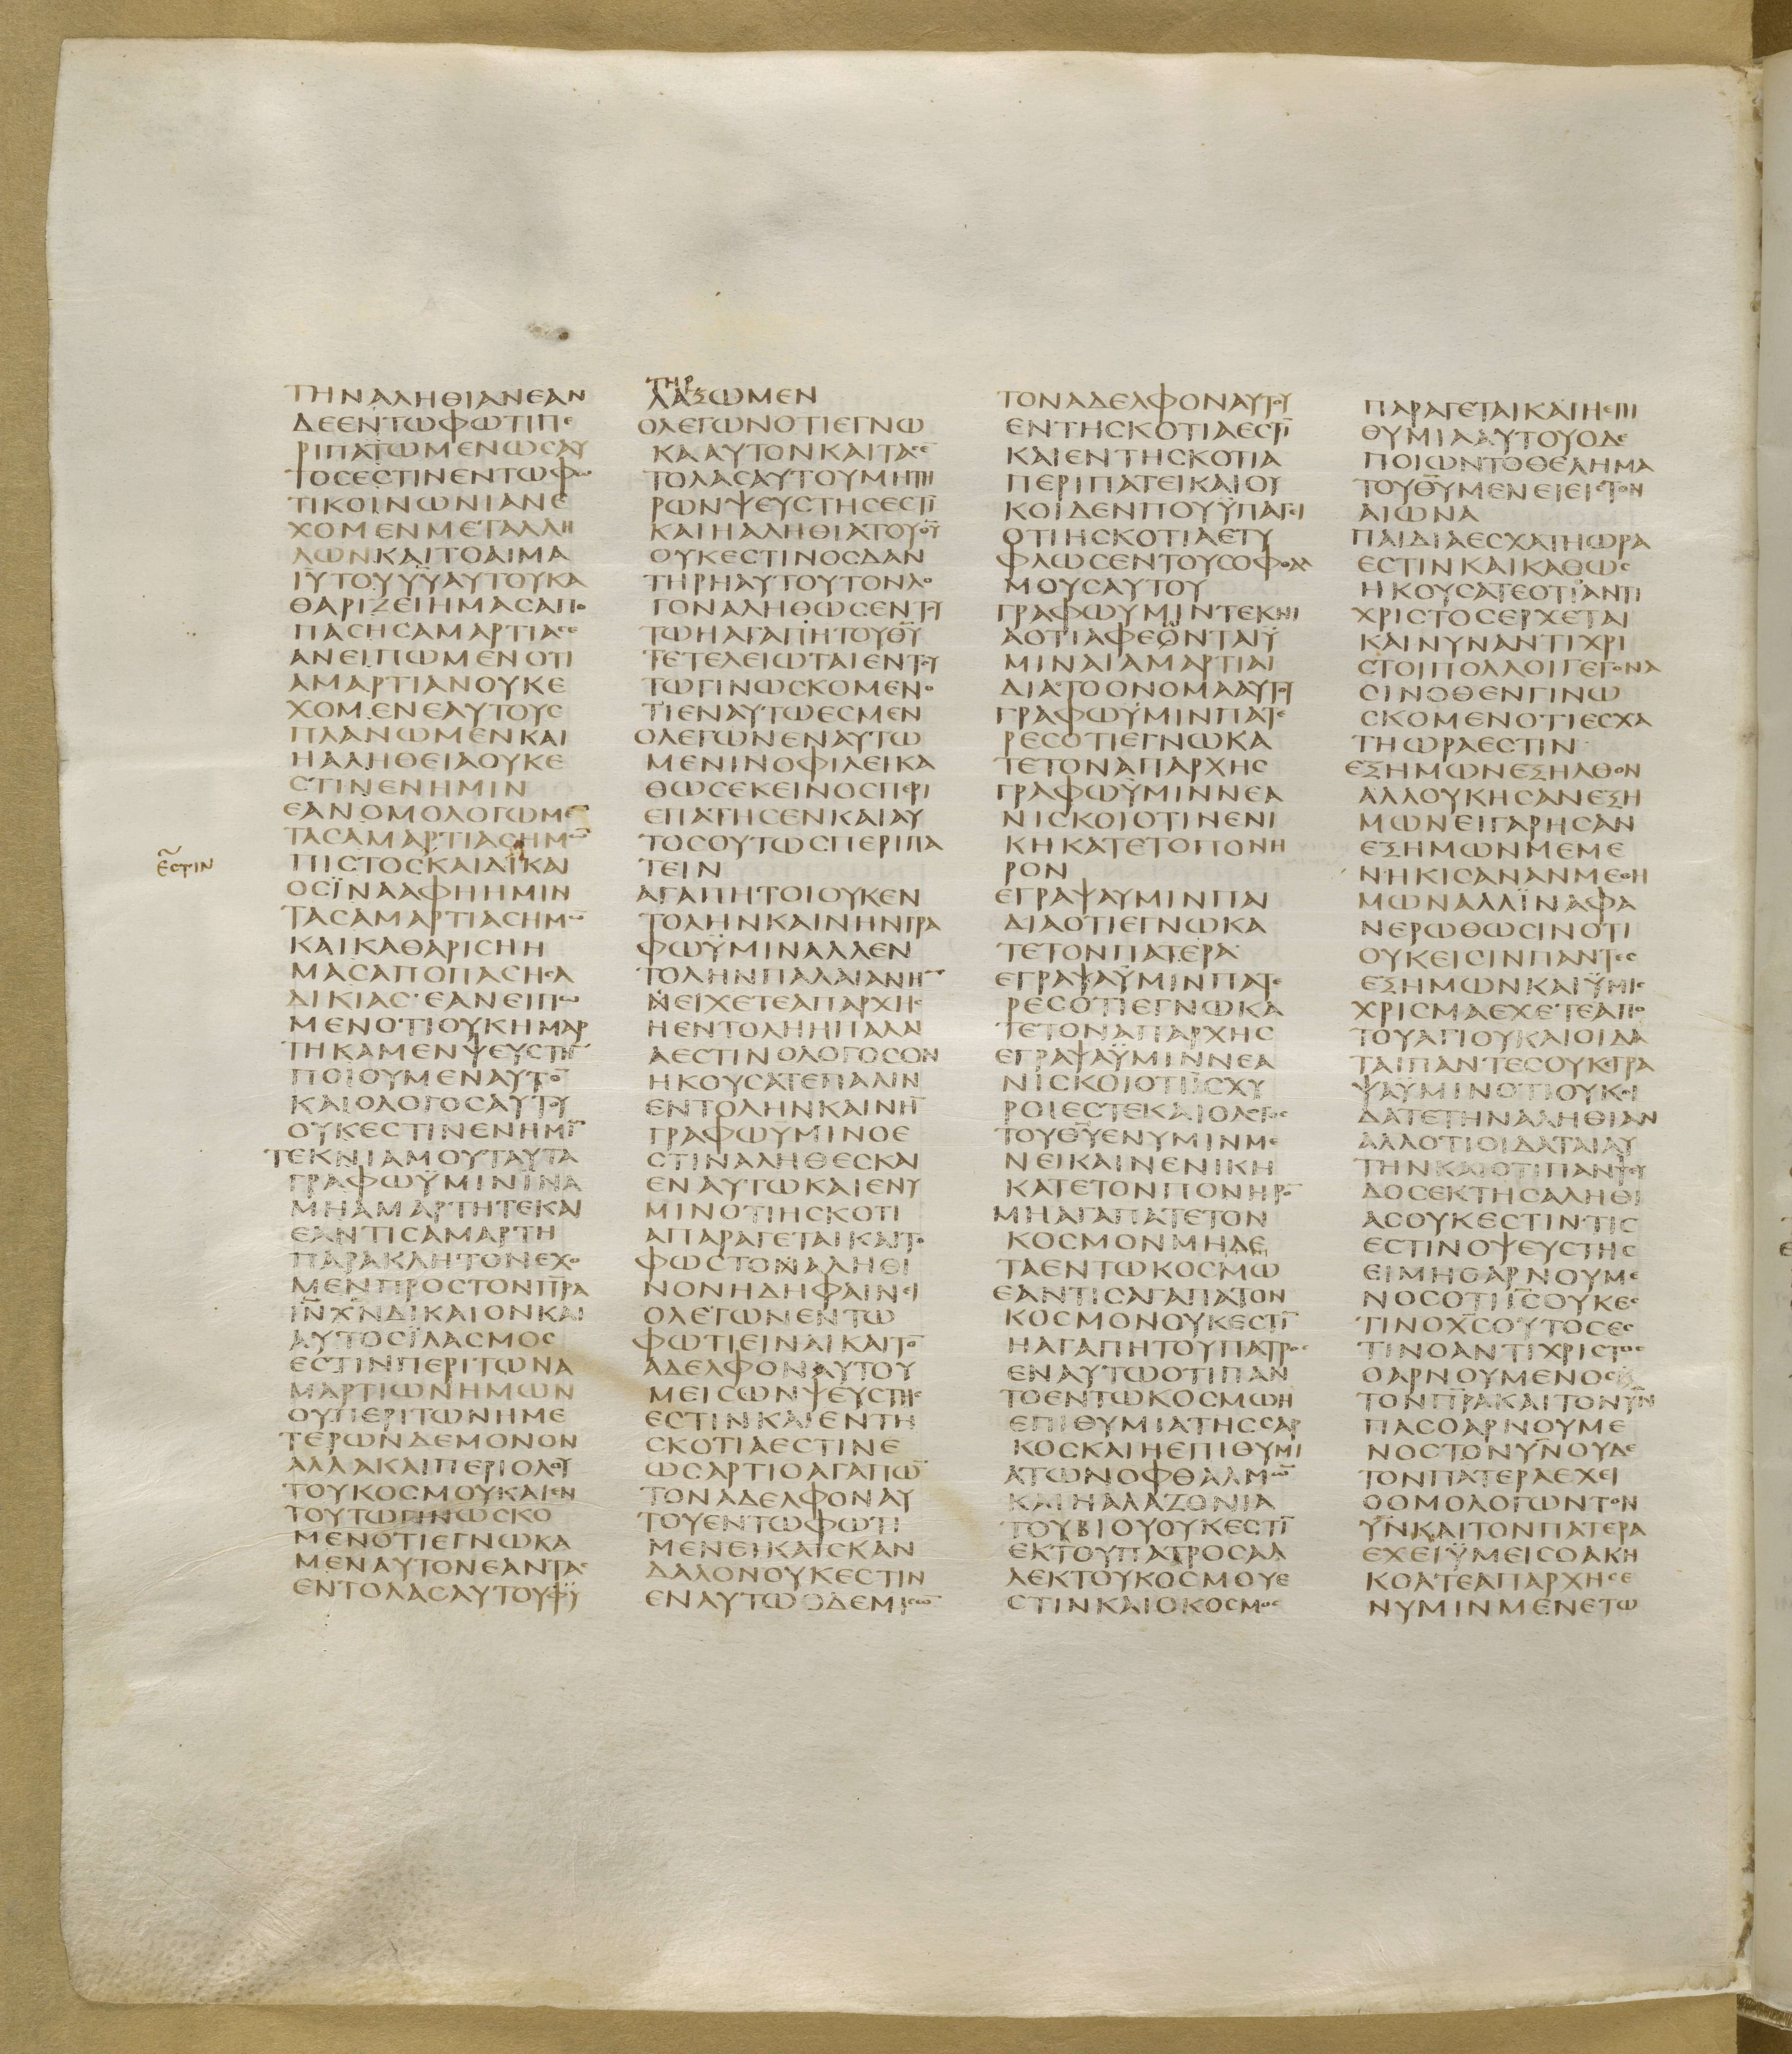 ΤΗΝΑΛΗΘΙΑΝΕΑΝ
ΔΕΕΝΤΩΦΩΤΙΠΕ
ΡΙΠΑΤΩΜΕΝΩϹΑΥ
ΤΟϹΕϹΤΙΝΕΝΤΩΦΩ
ΤΙΚΟΙΝΩΝΙΑΝΕ
ΧΟΜΕΝΜΕΤΑΛΛΗ
ΛΩΝΚΑΙΤΟΑΙΜΑ
ΙΥΤΟΥΥΥΑΥΤΟΥΚΑ
ΘΑΡΙΖΕΙΗΜΑϹΑΠΟ
ΠΑϹΗϹΑΜΑΡΤΙΑϹ
ΑΝΕΙΠΩΜΕΝΟΤΙ
ΑΜΑΡΤΙΑΝΟΥΚΕ
ΧΟΜΕΝΕΑΥΤΟΥϹ
ΠΛΑΝΩΜΕΝΚΑΙ
ΗΑΛΗΘΕΙΑΟΥΚΕ
ϹΤΙΝΕΝΗΜΙΝ
ΕΑΝΟΜΟΛΟΓΩΜΕ̅
ΤΑϹΑΜΑΡΤΙΑϹΗΜΩ̅
ΕϹΤΙΝ
ΠΙϹΤΟϹΚΑΙΔΙΚΑΙ
ΟϹΪΝΑΑΦΗΗΜΙΝ
ΤΑϹΑΜΑΡΤΙΑϹΗΜΩ̅
ΚΑΙΚΑΘΑΡΙϹΗΗ
ΜΑϹΑΠΟΠΑϹΗϹΑ
ΔΙΚΙΑϹ·ΕΑΝΕΙΠΩ
ΜΕΝΟΤΙΟΥΚΗΜΑΡ
ΤΗΚΑΜΕΝΨΕΥϹΤΗ̅
ΠΟΙΟΥΜΕΝΑΥΤΟ̅
ΚΑΙΟΛΟΓΟϹΑΥΤΟΥ
ΟΥΚΕϹΤΙΝΕΝΗΜΙ̅
ΤΕΚΝΙΑΜΟΥΤΑΥΤΑ
ΓΡΑΦΩΫΜΙΝΙΝΑ
ΜΗΑΜΑΡΤΗΤΕΚΑΙ
ΕΑΝΤΙϹΑΜΑΡΤΗ
ΠΑΡΑΚΛΗΤΟΝΕΧΟ
ΜΕΝΠΡΟϹΤΟΝΠ̅Ρ̅Α̅
Ι̅Ν̅Χ̅Ν̅ΔΙΚΑΙΟΝΚΑΙ
ΑΥΤΟϹΪΛΑϹΜΟϹ
ΕϹΤΙΝΠΕΡΙΤΩΝΑ
ΜΑΡΤΙΩΝΗΜΩΝ
ΟΥΠΕΡΙΤΩΝΗΜΕ
ΤΕΡΩΝΔΕΜΟΝΟΝ
ΑΛΛΑΚΑΙΠΕΡΙΟΛΟΥ
ΤΟΥΚΟϹΜΟΥΚΑΙΕΝ
ΤΟΥΤΩΓΙΝΩϹΚΟ
ΜΕΝΟΤΙΕΓΝΩΚΑ
ΜΕΝΑΥΤΟΝΕΑΝΤΑϹ
ΕΝΤΟΛΑϹΑΥΤΟΥΦΫ
ΤΗΡ
ΛΑΞΩΜΕΝ
ΟΛΕΓΩΝΟΤΙΕΓΝΩ
ΚΑΑΥΤΟΝΚΑΙΤΑϹΕ̅
ΤΟΛΑϹΑΥΤΟΥΜΗΤΗ
ΡΩΝΨΕΥϹΤΗϹΕϹΤΙ̅
ΚΑΙΗΑΛΗΘΙΑΤΟΥΘ̅Υ̅
ΟΥΚΕϹΤΙΝΟϹΔΑΝ
ΤΗΡΗΑΥΤΟΥΤΟΝΛΟ
ΓΟΝΑΛΗΘΩϹΕΝΤΟΥ
ΤΩΗΑΓΑΠΗΤΟΥΘ̅Υ̅
ΤΕΤΕΛΕΙΩΤΑΙΕΝΤΟΥ
ΤΩΓΙΝΩϹΚΟΜΕΝΟ
ΤΙΕΝΑΥΤΩΕϹΜΕΝ
ΟΛΕΓΩΝΕΝΑΥΤΩ
ΜΕΝΙΝΟΦΙΛΕΙΚΑ
ΘΩϹΕΚΕΙΝΟϹΠΕΡΙ
ΕΠΑΤΗϹΕΝΚΑΙΑΥ
ΤΟϹΟΥΤΩϹΠΕΡΙΠΑ
ΤΕΙΝ
ΑΓΑΠΗΤΟΙΟΥΚΕΝ
ΤΟΛΗΝΚΑΙΝΗΝΓΡΑ
ΦΩΫΜΙΝΑΛΛΕΝ
ΤΟΛΗΝΠΑΛΑΙΑΝΗ̅
ΝΕΙΧΕΤΕΑΠΑΡΧΗϹ
ΗΕΝΤΟΛΗΗΠΑΛΑΙ
ΑΕϹΤΙΝΟΛΟΓΟϹΟΝ
ΗΚΟΥϹΑΤΕΠΑΛΙΝ
ΕΝΤΟΛΗΝΚΑΙΝΗ̅
ΓΡΑΦΩΫΜΙΝΟΕ
ϹΤΙΝΑΛΗΘΕϹΚΑΙ
ΕΝΑΥΤΩΚΑΙΕΝΥ
ΜΙΝΟΤΙΗϹΚΟΤΙ
ΑΠΑΡΑΓΕΤΑΙΚΑΙΤΟ
ΦΩϹΤΟΝΑΛΗΘΙ
ΝΟΝΗΔΗΦΑΙΝΕΙ
ΟΛΕΓΩΝΕΝΤΩ
ΦΩΤΙΕΙΝΑΙΚΑΙΤΟ̅
ΑΔΕΛΦΟΝΑΥΤΟΥ
ΜΕΙϹΩΝΨΕΥϹΤΗϹ
ΕϹΤΙΝΚΑΙΕΝΤΗ
ϹΚΟΤΙΑΕϹΤΙΝΕ
ΩϹΑΡΤΙΟΑΓΑΠΩ̅
ΤΟΝΑΔΕΛΦΟΝΑΥ
ΤΟΥΕΝΤΩΦΩΤΙ
ΜΕΝΕΙΚΑΙϹΚΑΝ
ΔΑΛΟΝΟΥΚΕϹΤΙΝ
ΕΝΑΥΤΩΟΔΕΜΙϹΩ̅
ΤΟΝΑΔΕΛΦΟΝΑΥΤΟΥ
ΕΝΤΗϹΚΟΤΙΑΕϹΤΙ̅
ΚΑΙΕΝΤΗϹΚΟΤΙΑ
ΠΕΡΙΠΑΤΕΙΚΑΙΟΥ
ΚΟΙΔΕΝΠΟΥΫΠΑΓΕΙ
ΟΤΙΗϹΚΟΤΙΑΕΤΥ
ΦΛΩϹΕΝΤΟΥϹΟΦΘΑΛ
ΜΟΥϹΑΥΤΟΥ
ΓΡΑΦΩΥΜΙΝΤΕΚΝΙ
ΑΟΤΙΑΦΕΩΝΤΑΙΫ
ΜΙΝΑΙΑΜΑΡΤΙΑΙ
ΔΙΑΤΟΟΝΟΜΑΑΥΤΟΥ
ΓΡΑΦΩΫΜΙΝΠΑΤΕ
ΡΕϹΟΤΙΕΓΝΩΚΑ
ΤΕΤΟΝΑΠΑΡΧΗϹ
ΓΡΑΦΩΫΜΙΝΝΕΑ
ΝΙϹΚΟΙΟΤΙΝΕΝΙ
ΚΗΚΑΤΕΤΟΠΟΝΗ
ΡΟΝ
ΕΓΡΑΨΑΥΜΙΝΠΑΙ
ΔΙΑΟΤΙΕΓΝΩΚΑ
ΤΕΤΟΝΠΑΤΕΡΑ
ΕΓΡΑΨΑΫΜΙΝΠΑΤΕ
ΡΕϹΟΤΙΕΓΝΩΚΑ
ΤΕΤΟΝΑΠΑΡΧΗϹ
ΕΓΡΑΨΑΫΜΙΝΝΕΑ
ΝΙϹΚΟΙΟΤΙΪϹΧΥ
ΡΟΙΕϹΤΕΚΑΙΟΛΟΓΟϹ
ΤΟΥΘ̅Υ̅ΕΝΥΜΙΝΜΕ
ΝΕΙΚΑΙΝΕΝΙΚΗ
ΚΑΤΕΤΟΝΠΟΝΗΡΟ̅
ΜΗΑΓΑΠΑΤΕΤΟΝ
ΚΟϹΜΟΝΜΗΔΕ
ΤΑΕΝΤΩΚΟϹΜΩ
ΕΑΝΤΙϹΑΓΑΠΑΤΟΝ
ΚΟϹΜΟΝΟΥΚΕϹΤΙ̅
ΗΑΓΑΠΗΤΟΥΠΑΤΡΟϹ
ΕΝΑΥΤΩΟΤΙΠΑΝ
ΤΟΕΝΤΩΚΟϹΜΩΗ
ΕΠΙΘΥΜΙΑΤΗϹϹΑΡ
ΚΟϹΚΑΙΗΕΠΙΘΥΜΙ
ΑΤΩΝΟΦΘΑΛΜΩ̅
ΚΑΙΗΑΛΑΖΟΝΙΑ
ΤΟΥΒΙΟΥΟΥΚΕϹΤΙ̅
ΕΚΤΟΥΠΑΤΡΟϹΑΛ
ΛΕΚΤΟΥΚΟϹΜΟΥΕ
ϹΤΙΝΚΑΙΟΚΟϹΜΟϹ
ΠΑΡΑΓΕΤΑΙΚΑΙΗΕΠΙ
ΘΥΜΙΑΑΥΤΟΥΟΔΕ
ΠΟΙΩΝΤΟΘΕΛΗΜΑ
ΤΟΥΘ̅Υ̅ΜΕΝΕΙΕΙϹΤΟΝ
ΑΙΩΝΑ
ΠΑΙΔΙΑΕϹΧΑΤΗΩΡΑ
ΕϹΤΙΝΚΑΙΚΑΘΩϹ
ΗΚΟΥϹΑΤΕΟΤΙΑΝΤΙ
ΧΡΙϹΤΟϹΕΡΧΕΤΑΙ
ΚΑΙΝΥΝΑΝΤΙΧΡΙ
ϹΤΟΙΠΟΛΛΟΙΓΕΓΟΝΑ
ϹΙΝΟΘΕΝΓΙΝΩ
ϹΚΟΜΕΝΟΤΙΕϹΧΑ
ΤΗΩΡΑΕϹΤΙΝ
ΕΞΗΜΩΝΕΞΗΛΘΟΝ
ΑΛΛΟΥΚΗϹΑΝΕΞΗ
ΜΩΝΕΙΓΑΡΗϹΑΝ
ΕΞΗΜΩΝΜΕΜΕ
ΝΗΚΙϹΑΝΑΝΜΕΘΗ
ΜΩΝΑΛΛΪΝΑΦΑ
ΝΕΡΩΘΩϹΙΝΟΤΙ
ΟΥΚΕΙϹΙΝΠΑΝΤΕϹ
ΕΞΗΜΩΝΚΑΙΫΜΙϹ
ΧΡΙϹΜΑΕΧΕΤΕΑΠΟ
ΤΟΥΑΓΙΟΥΚΑΙΟΙΔΑ
ΤΑΙΠΑΝΤΕϹΟΥΚΕΓΡΑ
ΨΑΫΜΙΝΟΤΙΟΥΚΟΙ
ΔΑΤΕΤΗΝΑΛΗΘΙΑΝ
ΑΛΛΟΤΙΟΙΔΑΤΑΙΑΥ
ΤΗΝΚΑΙΟΤΙΠΑΝΨΕΥ
ΔΟϹΕΚΤΗϹΑΛΗΘΙ
ΑϹΟΥΚΕϹΤΙΝΤΙϹ
ΕϹΤΙΝΟΨΕΥϹΤΗϹ
ΕΙΜΗΟΑΡΝΟΥΜΕ
ΝΟϹΟΤΙΙ̅Ϲ̅ΟΥΚΕϹ
ΤΙΝΟΧ̅Ϲ̅ΟΥΤΟϹΕϹ
ΤΙΝΟΑΝΤΙΧΡΙϹΤΟϹ
ΟΑΡΝΟΥΜΕΝΟϹ
ΤΟΝΠ̅Ρ̅Α̅ΚΑΙΤΟΝΥ̅Ν̅
ΠΑϹΟΑΡΝΟΥΜΕ
ΝΟϹΤΟΝΥ̅Ν̅ΟΥΔΕ
ΤΟΝΠΑΤΕΡΑΕΧΕΙ
ΟΟΜΟΛΟΓΩΝΤΟΝ
Υ̅Ν̅ΚΑΙΤΟΝΠΑΤΕΡΑ
ΕΧΕΙΫΜΕΙϹΟΑΚΗ
ΚΟΑΤΕΑΠΑΡΧΗϹΕ
ΝΥΜΙΝΜΕΝΕΤΩ